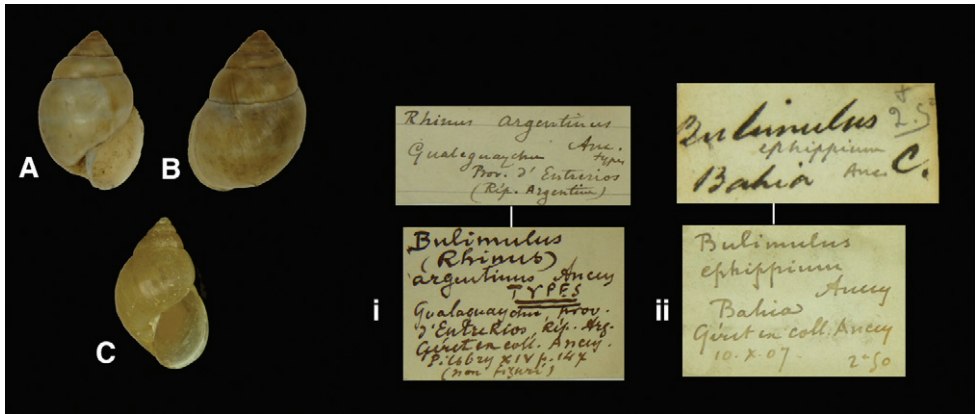 A
B
C
i
Rhinus argentinus
Anc.
types
Gualeguaychu
Prov. d'Entrerios
(Rép. Argentine)
Bulimulus
(Rhinus)
argentinus Ancey
TYPES
Gualeguaychu, prov.
d'Entre Rios, Rép. Arg.
Géret ex coll. Ancey.
Pilsbry XIV p. 147
(non figuré)
ii
Bulimulus
ephippium
Anc.
Bahia
C.
2.50
Bulimulus
ephippium
Ancey
Bahia
Géret ex coll. Ancey
10.X.07
2-50